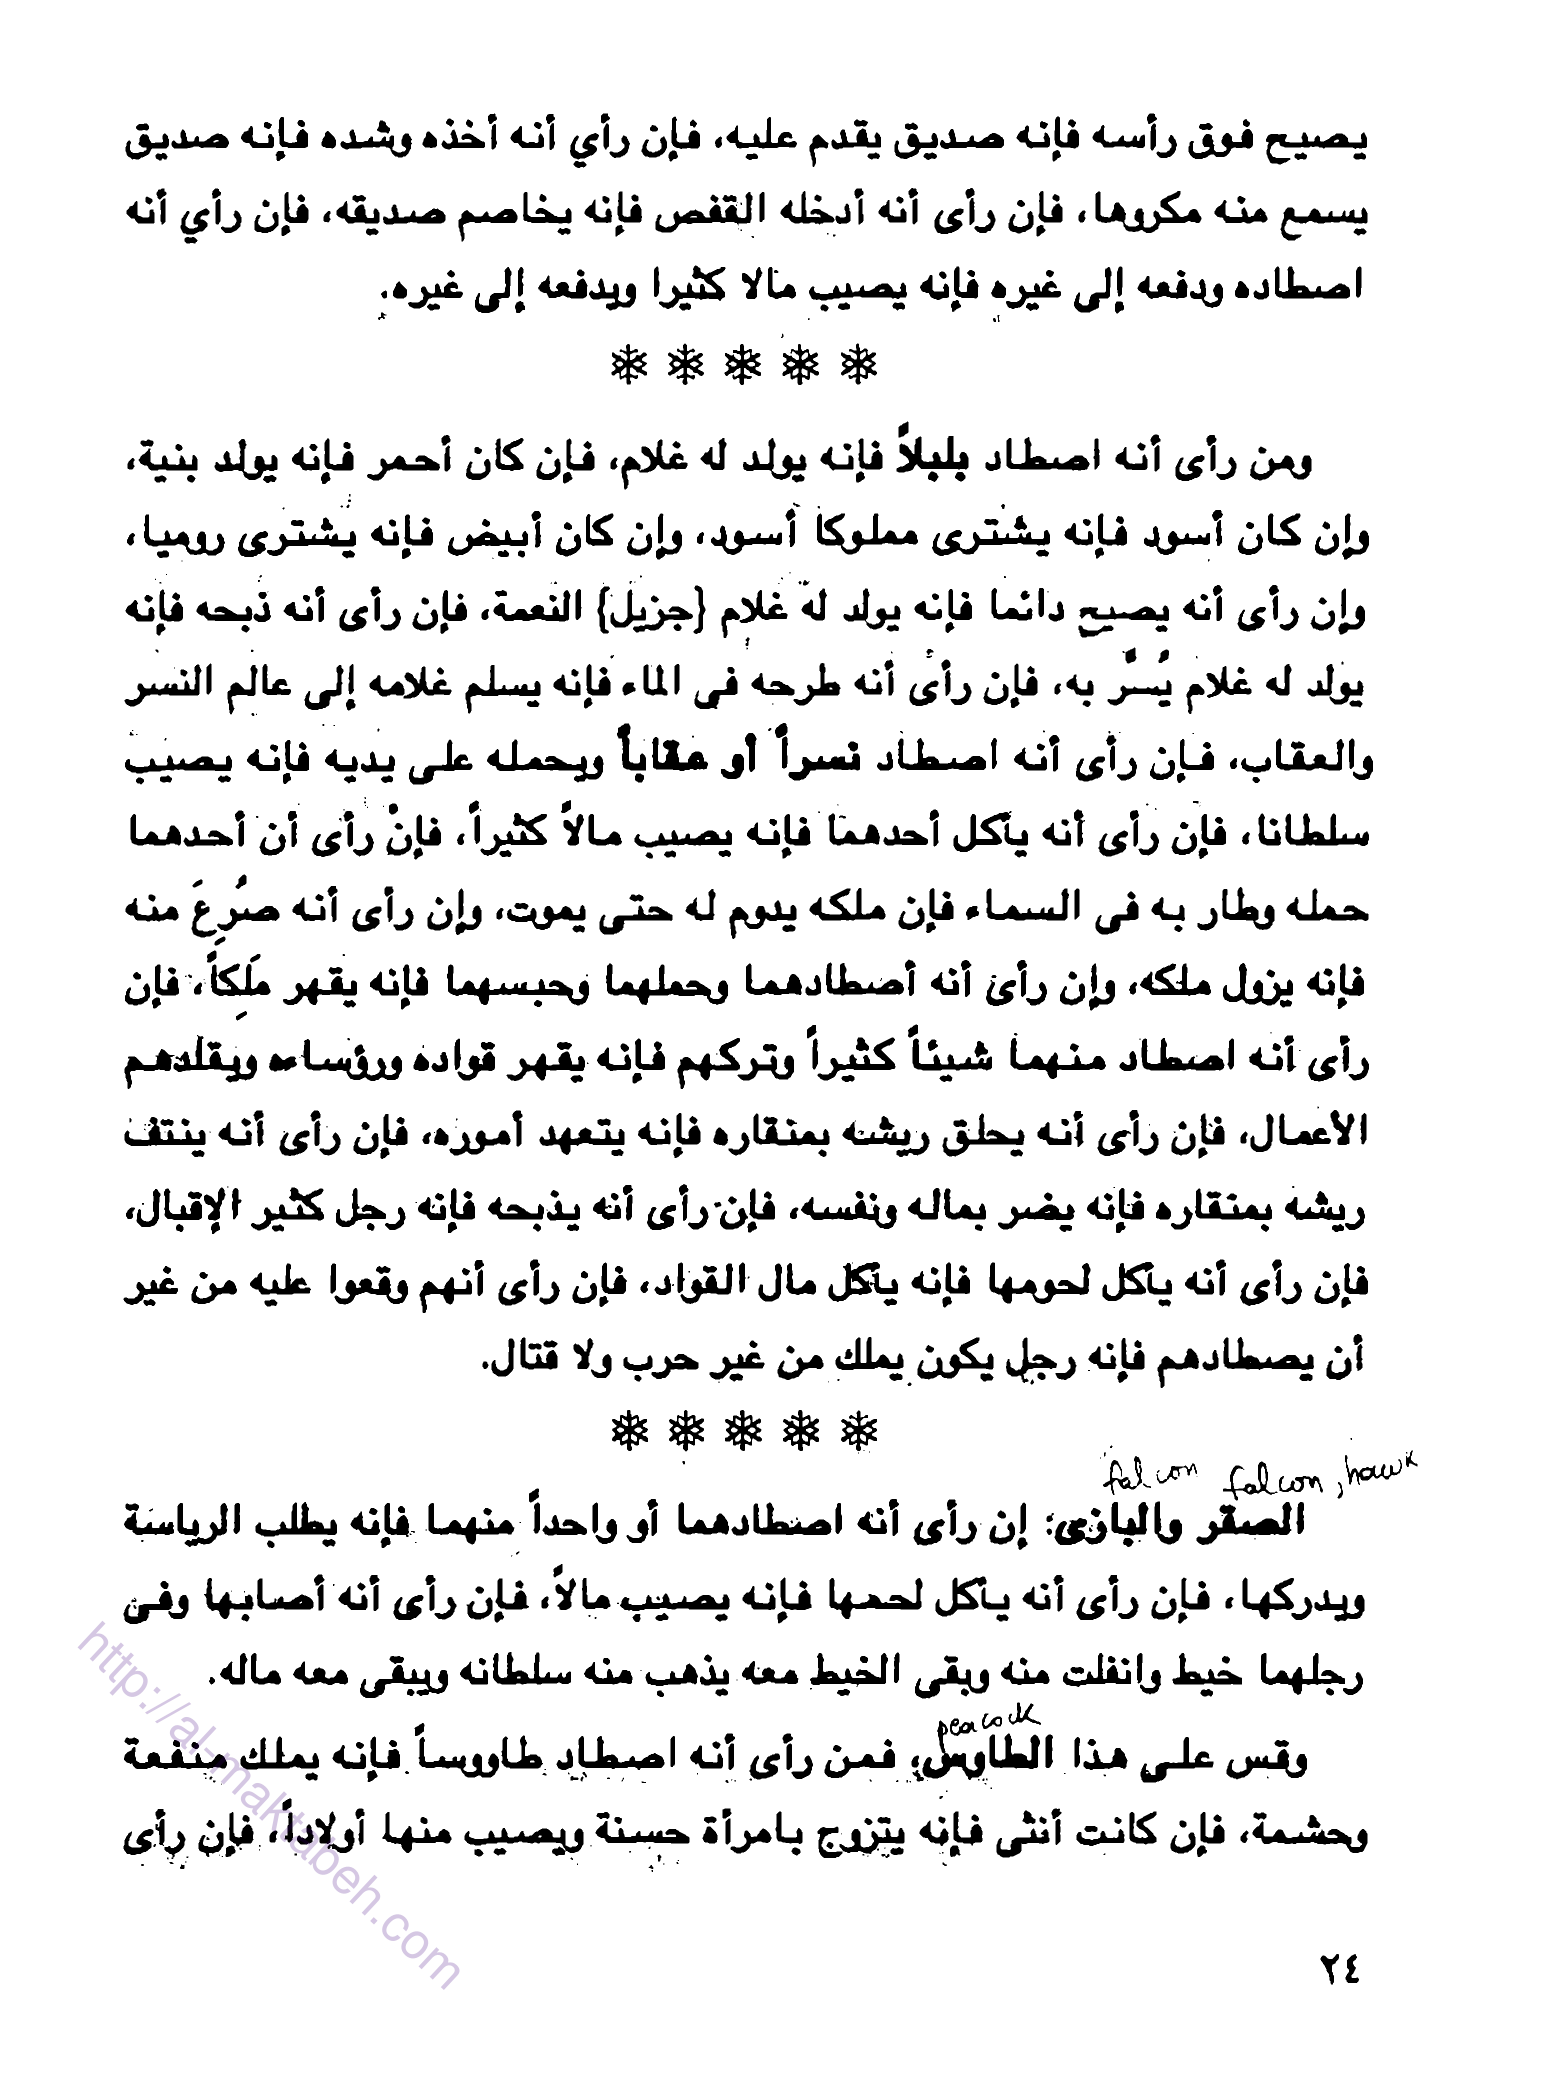 يصيح فوق رأسه فإنه صديق يقدم عليه، فإن رأي أنه أخذه وشده فإنه صديق
يسمع منه مكروها، فإن رأى أنه أدخله القفص فإنه يخاصم صديقه، فإن رأي أنه
اصطاده ودفعه إلى غيره فإنه يصيب مالا كثيرا ويدفعه إلى غيره.
❊ ❊ ❊ ❊ ❊
ومن رأى أنه اصطاد بلبلاً فإنه يولد له غلام، فإن كان أحمر فإنه يولد بنية،
وإن كان أسود فإنه يشترى مملوكا أسود، وإن كان أبيض فإنه يشترى روميا،
وإن رأى أنه يصيح دائما فإنه يولد له غلام {جزيل} النعمة، فإن رأى أنه ذبحه فإنه
يولد له غلام يُسرَّ به، فإن رأى أنه طرحه فى الماء فإنه يسلم غلامه إلى عالم النسر
والعقاب، فإن رأى أنه اصطاد نسراً أو عقاباً ويحمله على يديه فإنه يصيب
سلطانا، فإن رأى أنه يأكل أحدهما فإنه يصيب مالاً كثيراً، فإن رأى أن أحدهما
حمله وطار به فى السماء فإن ملكه يدوم له حتى يموت، وإن رأى أنه صُرِعَ منه
فإنه يزول ملكه، وإن رأى أنه أصطادهما وحملهما وحبسهما فإنه يقهر ملَكِاً، فإن
رأى أنه اصطاد منهما شيئاً كثيراً وتركهم فإنه يقهر قواده ورؤساءه ويقلدهم
الأعمال، فإن رأى أنه يحلق ريشه بمنقاره فإنه يتعهد أموره، فإن رأى أنه ينتف
ريشه بمنقاره فإنه يضر بماله ونفسه، فإن رأى أنه يذبحه فإنه رجل كثير الإقبال،
فإن رأى أنه يأكل لحومها فإنه يأكل مال القواد، فإن رأى أنهم وقعوا عليه من غير
أن يصطادهم فإنه رجل يكون يملك من غير حرب ولا قتال.
❊ ❊ ❊ ❊ ❊
falcon falcon, hawk
الصقر والبازى؛ إن رأى أنه اصطادهما أو واحداً منهما فإنه يطلب الرياسة
ويدركها، فإن رأى أنه يأكل لحمها فإنه يصيب مالاً، فإن رأى أنه أصابها وفى
رجلهما خيط وانفلت منه وبقى الخيط معه يذهب منه سلطانه ويبقى معه ماله.
peacock
وقس على هذا الطاوس، فمن رأى أنه اصطاد طاووساً فإنه يملك منفعة
وحشمة، فإن كانت أنثى فإنه يتزوج بامرأة حسنة ويصيب منها أولاداً، فإن رأى
٢٤
http://al-maktabeh.com